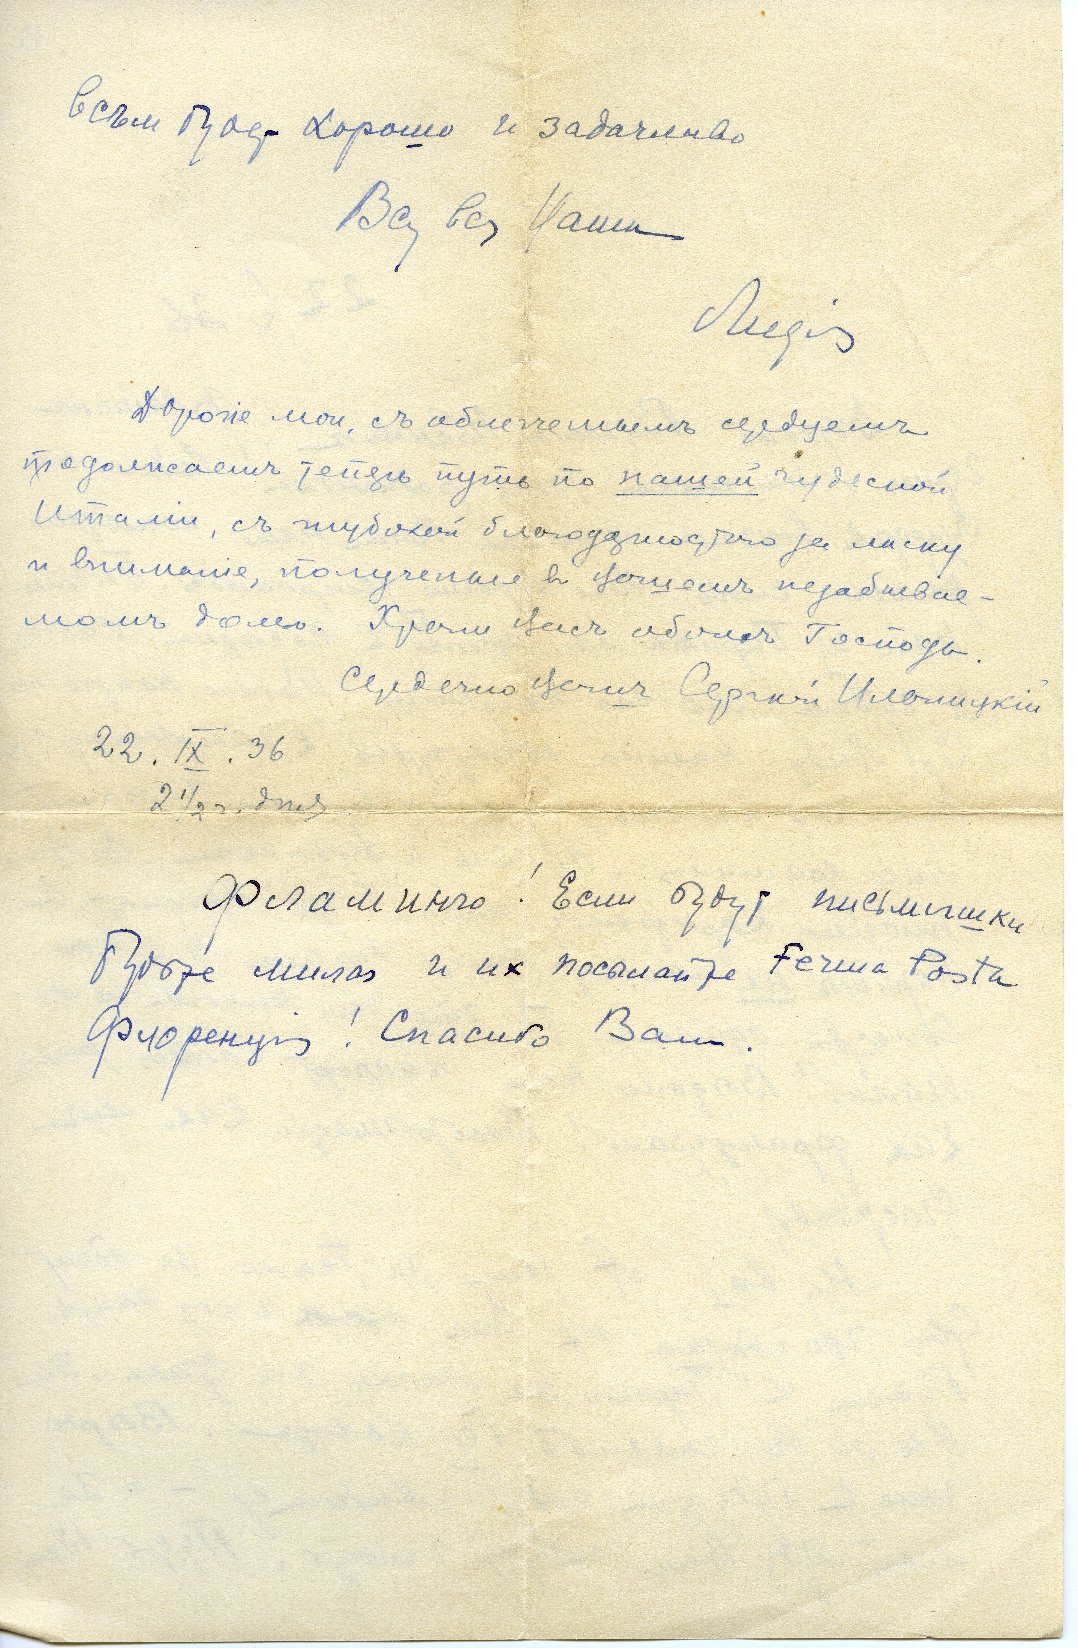 всѣм будт хорошо и задачливо
Вся вся Ваша
Лидія
Дорогіе мои, съ облегченнымъ сердцемъ
продолжаемъ теперь путь по нашей чудесной
Италіи, съ глубокой благодарностью за ласку
и вниманіе, полученныя в Вашемъ незабывае-
момъ домѣ. Храни Васъ обоихъ Господь.
Сердечно Вашъ Сергѣй
22. IX. 36
2 1/2 ч. дня.
Фламинго! Если будут письмишки
Будьте милая и их посылайте Ferma Posta
Флоренція! Спасибо Вам.